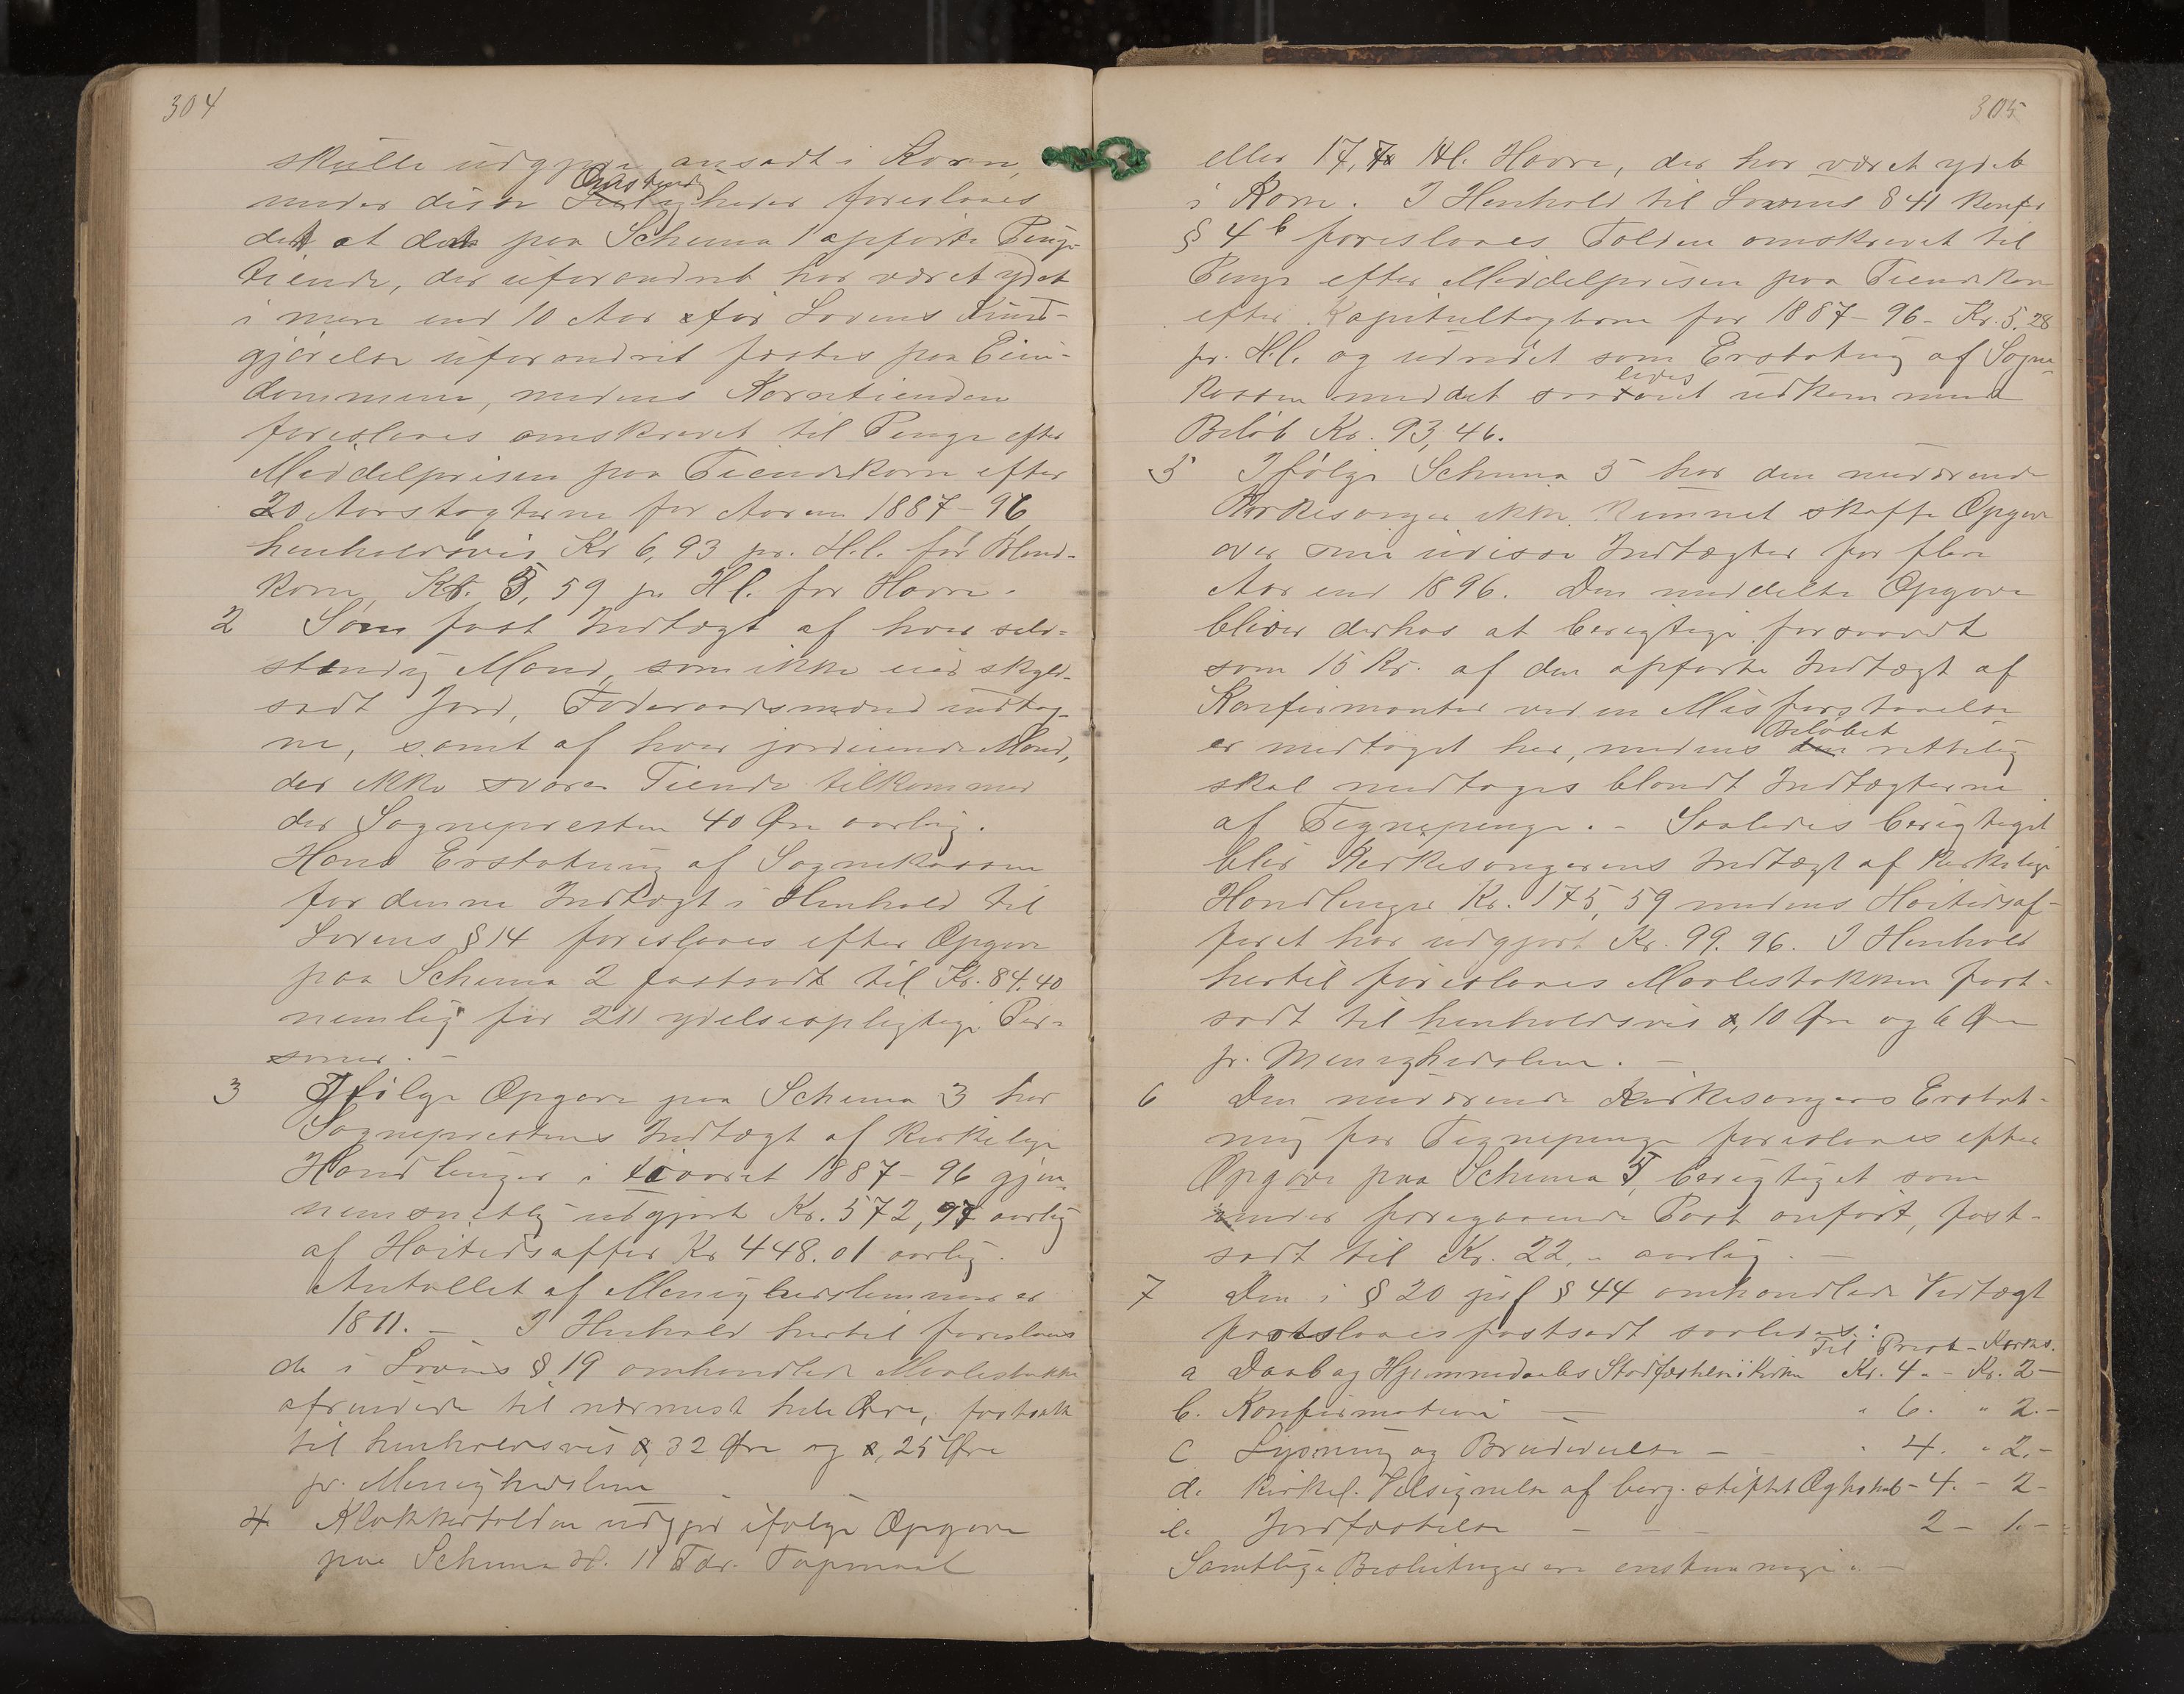 304
skulle udgjøre ansadt i Korn,
under disse Omstændigheder foreslaaes
det at det paa Schema 1 opførte Penge-
tiende, der uforandret har været ydet
i mere end 10 Aar før Lovens Kund-
gjørelse uforandret fæstes paa Eien-
dommene, medens Korntienden
foreslaaes omskrevet til Penge efter
Middelprisen paa Tiendekorn efter
20 Aarstagterne for Aarene 1887-96
henholdsvis Kr 6,93 pr. H.l. for Bland-
korn, Kr. 5,59 pr Hl. for Havre.
2 Som fast Indtægt af hver selv-
stændig Mand, som ikke eier skyld-
sadt Jord, Foderaadsmænd undtag-
ne, samt af hver jordeiende Mand,
der ikke svarer Tiende tilkommer
der Sognepresten 40 Øre aarlig.
Hans Erstatning af Sognekassen
for denne Indtægt i Henhold til
Lovens § 14 foreslaaes efter Opgave
paa Schema 2 fastsadt til Kr. 84.40
nemlig for 211 ydelsespligtige Per-
soner. -
3 Ifølge Opgave paa Schema 3 har
Sogneprestens Indtægt af kirkelige
Handlinger i tiaaret 1887-96 gjen-
nemsnitlig udgjort Kr. 572,97 aarlig
af Høitidsoffer Kr 448.01 aarlig.
Antallet af Menighedslemmer er
1811. - I Henhold hertil foreslaaes
de i Lovens § 19 omhandlede Maalestokke
afrundede til nærmest hele Øre, fastsatte
til henholdsvis 32 Øre og 25 Øre
pr. Menighedslem
4 Klokkertolden udgjør ifølge Opgave
paa Schema 4. 11 Tdr. Topmaal
305
eller 17,70 Hl. Havre, der har været ydet
i Korn. I Henhold til Lovens § 41 konfr
§ 4 b foreslaaes Tolden omskrevet til
Penge efter Middelprisen paa Tiendekorn
efter Kapitultagterne for 1887-96 - Kr. 5.28
pr. H.l. og udredet som Erstatning af Sogne-
kassen med det saaledes udkommende
Beløb Kr. 93,46.
5 Ifølge Schema 5 har den nuværende
Kirkesanger ikke kunnet skaffe Opgave
over sine uvisse Indtægter for flere
Aar end 1896. Den meddelte Opgave
bliver derhos at berigtige forsaavidt
som 15 Kr. af den opførte Indtægt af
Konfirmanter ved en Misforstaaelse
er medtaget her, medens Beløbet rettelig
skal medtages blandt Indtægterne
af Tegnepenge. - Saaledes berigtiget
blir Kirkesangerens Indtægt af kirkelige
Handlinger Kr. 175,59 medens Høitidsof-
feret har udgjort Kr. 99.96. I Henhold
hertil foreslaaes Maalestokken fast-
sadt til henholdsvis 10 Øre og 6 Øre
pr. Menighedslem. -
6 Den nuværende Kirkesangers Erstat-
ning for Tegnepenge foreslaaes efter
Opgave paa Schema 5, berigtiget som
under foregaaende Post anført, fast-
sadt til Kr. 22,- aarlig. -
7 Den i § 20 jvf § 44 omhandlede Vedtægt
foreslaaes fastsadt saaledes:
Til Prest - Kirkes.
a Daab og Hjemmedaabs Stadfæstelse i Kirken Kr. 4 - Kr. 2 -
b. Konfirmation — " 6. " 2.-
c Lysning og Brudevielse - - " 4. " 2.-
d. Kirkel. Velsignelse af borg. stiftet Ægteskab - 4. - 2 -
e. Jordfæstelse - - - 2 - 1. -
Samtlige Beslutninger ere enstemmige. -